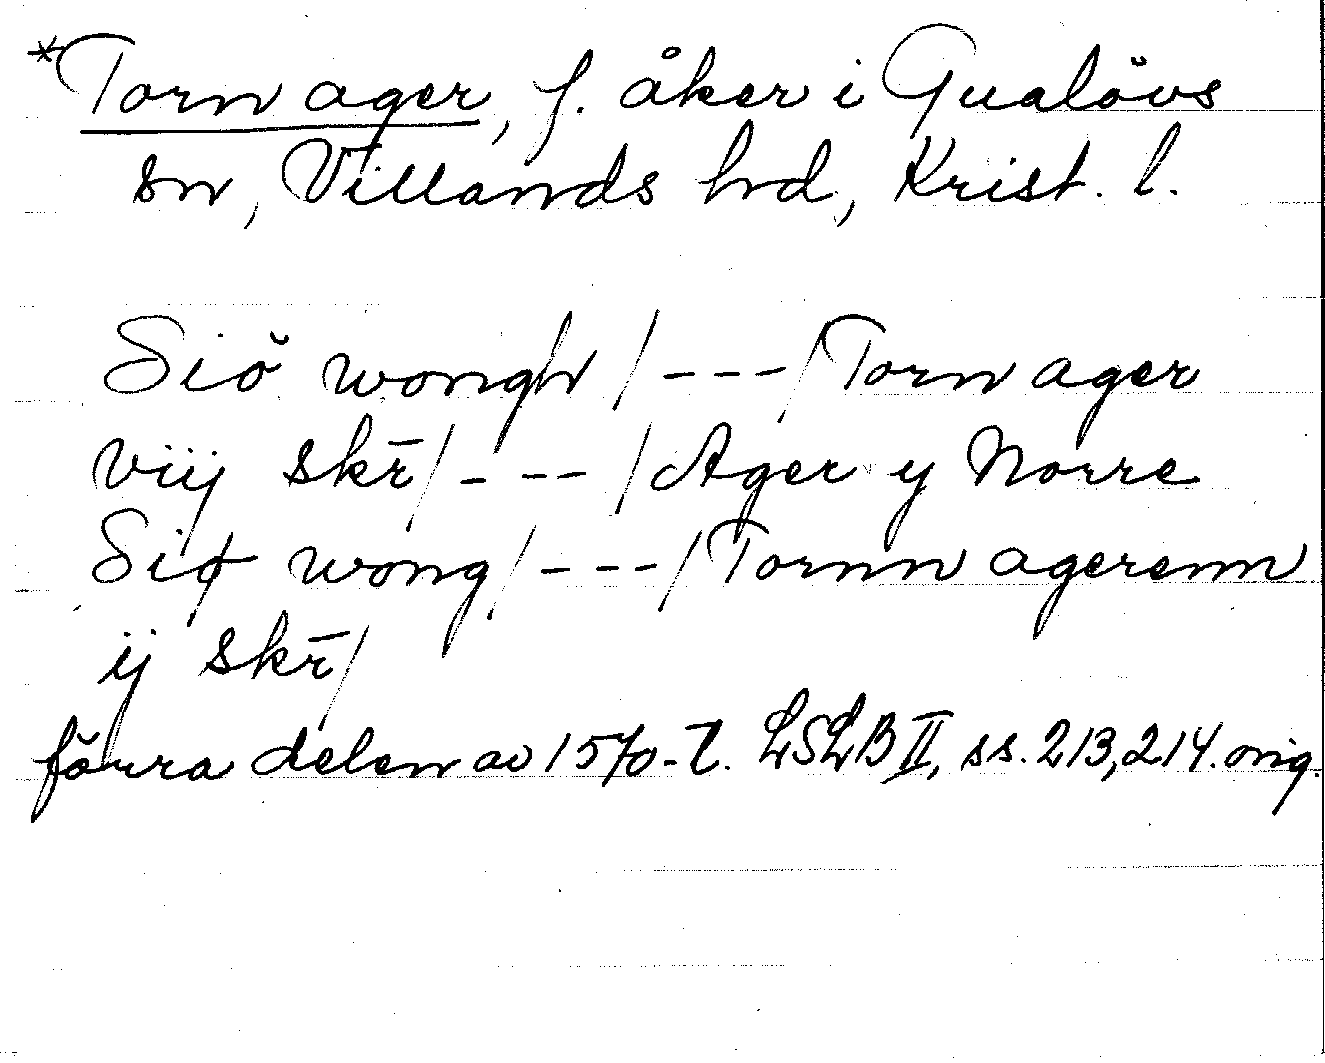 *Torn ager, f. åker i Gualövs
sn, Villands hd, Krist. l.
Siŏ wongh /---/ Torn ager
viij skr̄ /---/ Ager y Norre
Siø wong /---/ Tornn agerenn
ij skr̄/
förra delen av 1570-t. LSLB II, ss. 213, 214. orig.